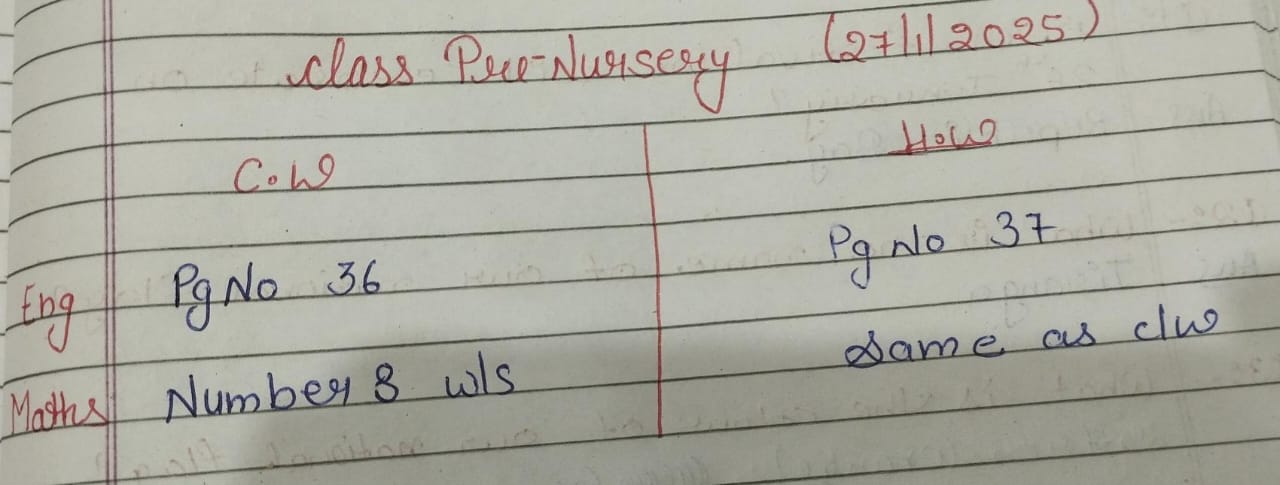 class Pre-Nursery (27/1/2025)
C.W H.W
Eng Pg No 36 Pg No 37
Maths Number 8 w/s Same as c/w